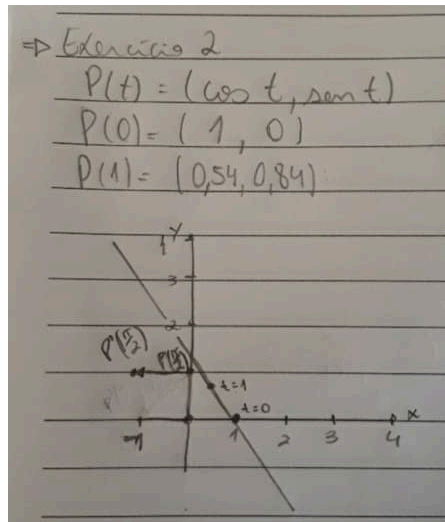 ⇒ Exercício 2
P(t) = (cos t, sen t)
P(0) = (1, 0)
P(1) = (0,54, 0,84)
Y
3
2
P'(π/2) P(π/2)
t=1
t=0 x
-1 1 2 3 4